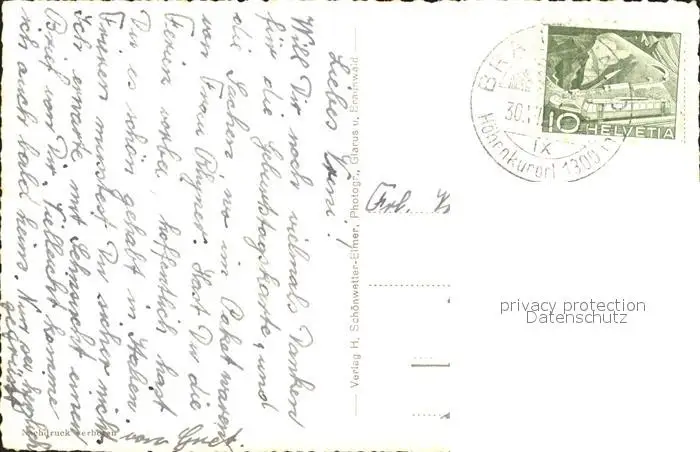 Liebes Greni!
Will Dir noch vielmals Danken
für die Geburtstagskarte, und
die Sachen, wo im Paket waren
von Frau Rhyner. Hast Du die
Ferien vorbei, hoffentlich hast
Du es schön gehabt in Italien.
Frieren musstest Du sicher nicht
Ich erwarte mit Sehnsucht einen
Brief von Dir. Vielleicht komme
ich auch bald heim. Nun sei
von Gret.
Nachdruck verboten
Verlag H. Schönwetter-Elmer, Photogr., Glarus u. Braunwald
Frl.
BRA
30.
IX
Höhenkurort 1300
10 HELVETIA
privacy protection
Datenschutz